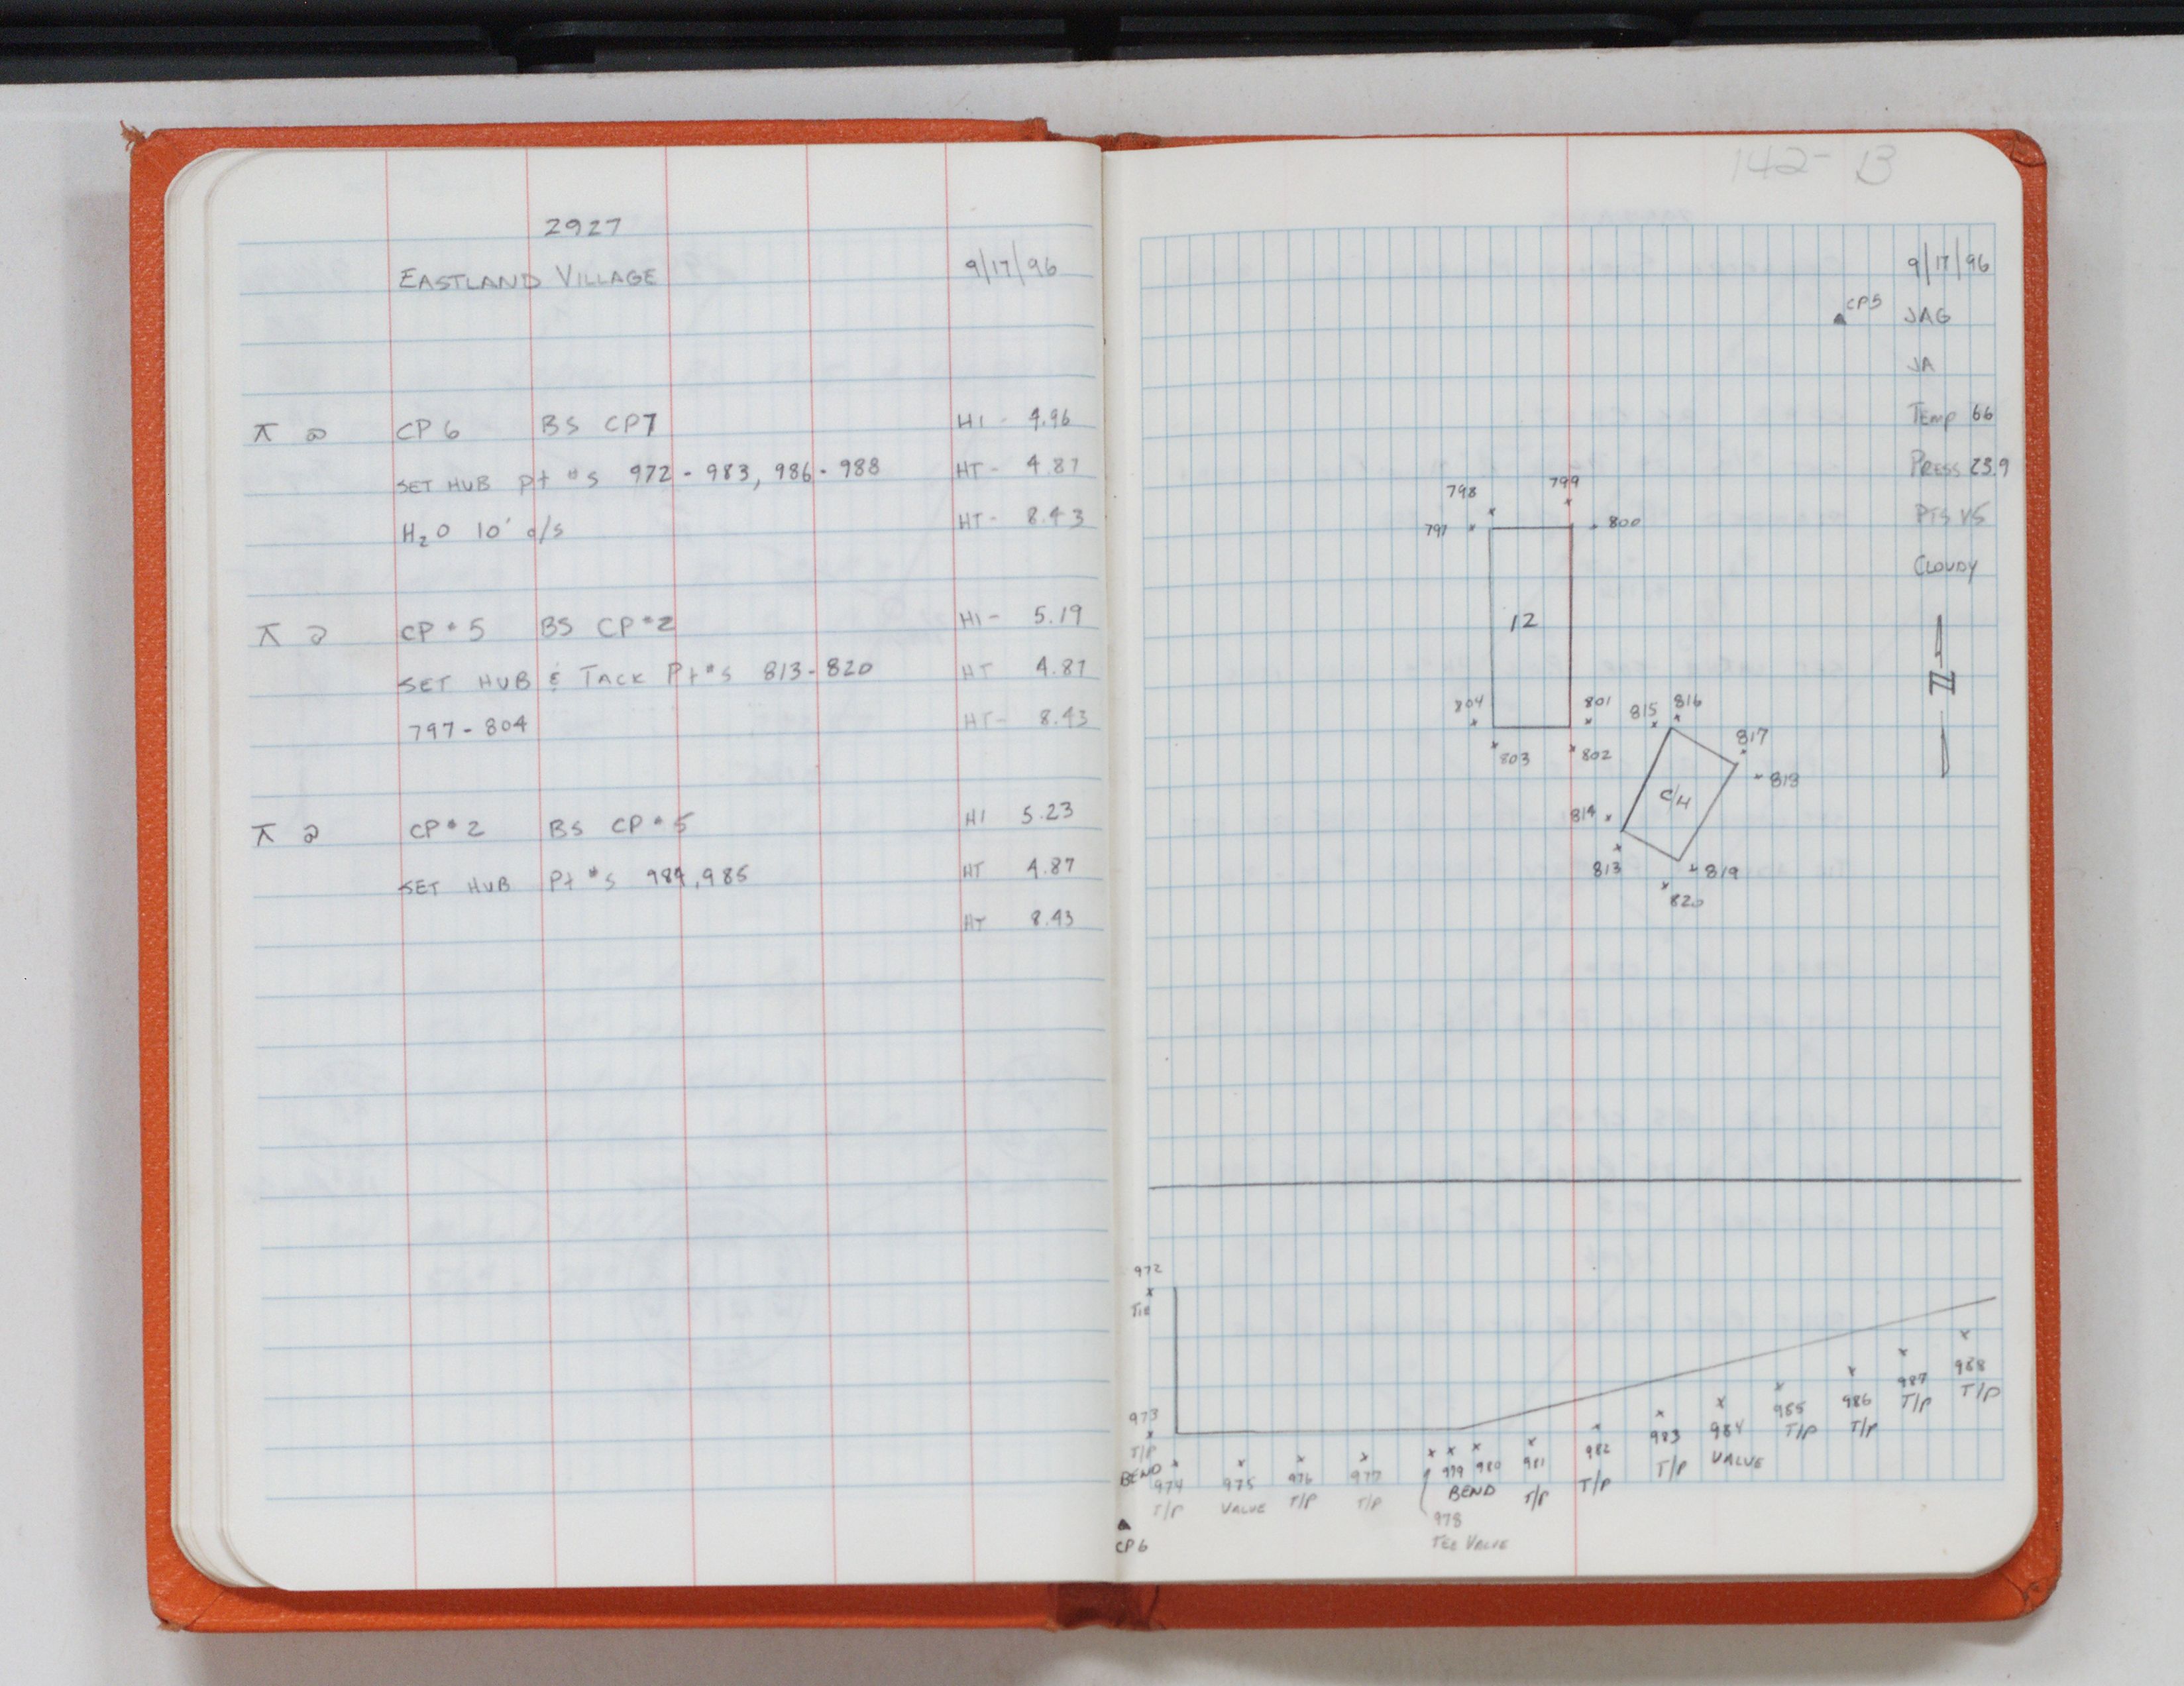 2927
EASTLAND VILLAGE 9/17/96
π @ CP 6 BS CP7 HI - 4.96
SET HUB Pt #s 972 - 983, 986 - 988 HT - 4.87
H₂O 10' o/s HT - 8.43
π @ CP #5 BS CP #2 HI - 5.19
SET HUB & TACK Pt #s 813-820 HT 4.87
797 - 804 HT - 8.43
π @ CP #2 BS CP #5 HI 5.23
SET HUB Pt #s 984, 985 HT 4.87
HT 8.43
142- B
9/17/96
CP5
JAG
JA
TEMP 66
PRESS 23.9
PTS V5
CLOUDY
N
798 799
797 800
12
804 801
803 802
815 816
817
818
C/H
814
813 819
820
972
TIE
973
T/P
BEND
974
T/P
975
VALUE
976
T/P
977
T/P
978
TEE VALUE
979 980
BEND
981
T/P
982
T/P
983
T/P
984
VALUE
985
T/P
986
T/P
987
T/P
988
T/P
CP6